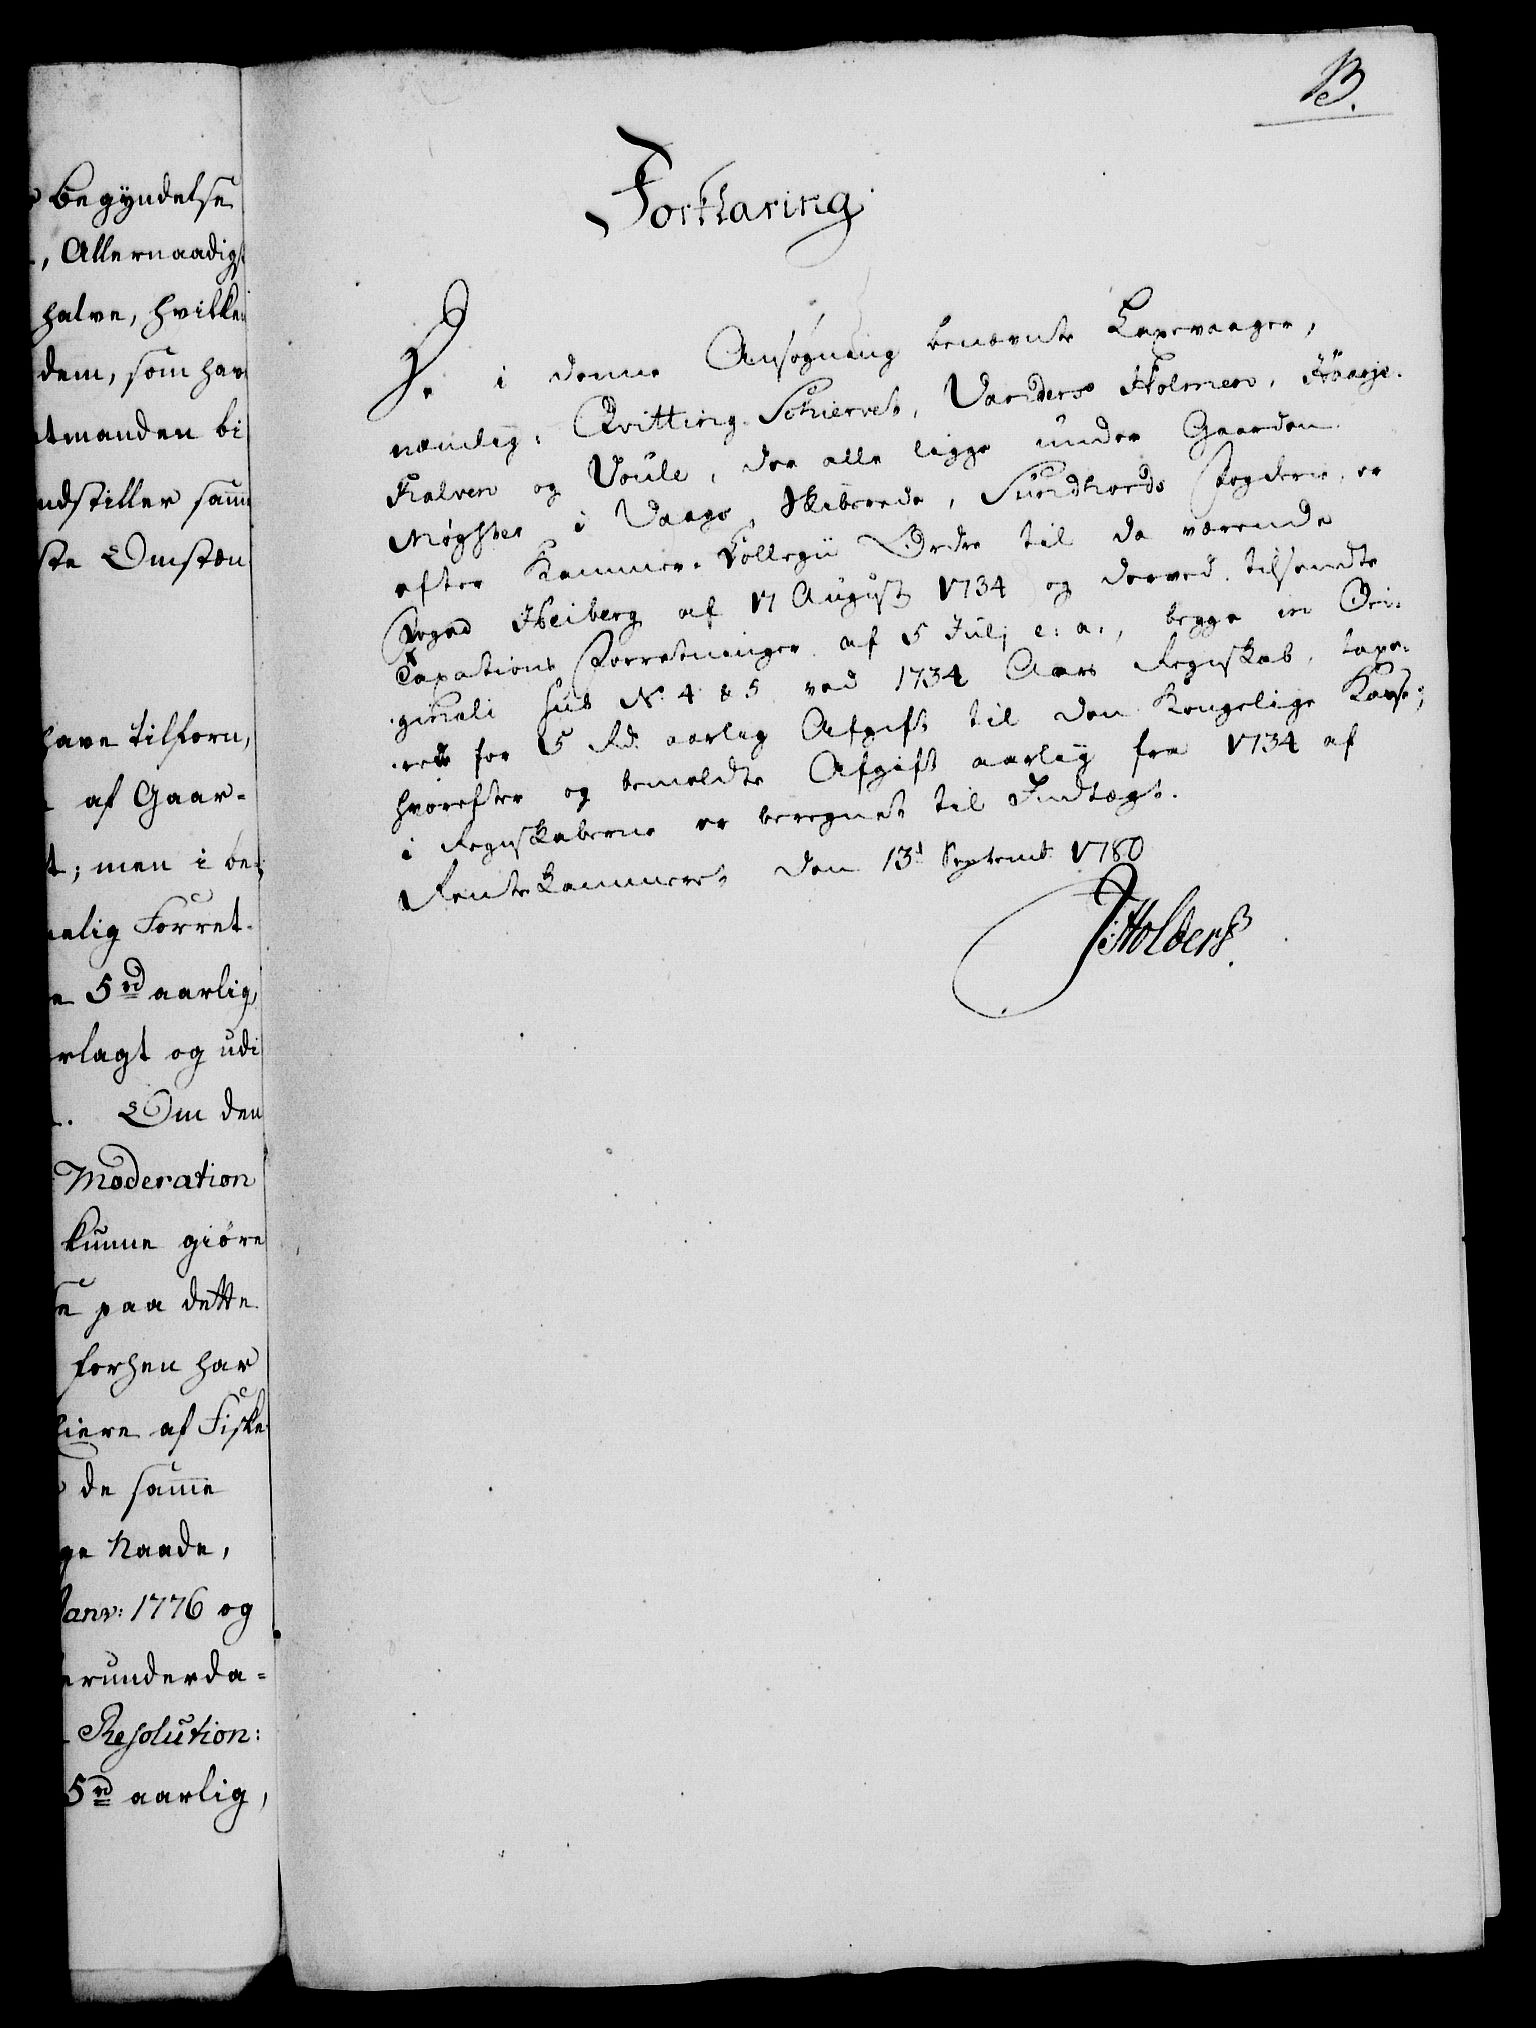 B.
Forklaring
De i denne Ansøgning benævnte Laxevaager,
nemlig: Qvitting-Schiervet, Vardders Holmen, Hõaeje-
Kalven og Voule, der alle ligge under Gaarden
Møgster i Vaags Skibrede, Sundhords Fogderie, er
efter Kammer-Collegii Ordre til da værende
Foged Heiberg af 17 August 1734 og derved tilsendte
Taxations Forretninger af 5 Julj e: a:, begge in Ori-
ginali sub N. 4 & 5 ved 1734 Aars Regnskab, taxe-
ret for 5 Rd. aarlig Afgift til den Kongelige Kasse;
hvorefter og bemeldte Afgift aarlig fra 1734 af
i Regnskaberne er beregnet til Indtægt.
Rentekammeret den 13d Septemb. 1780
J: Holderß.
Begyndelse
, Allernaadigst
halve, hvilken
dem, som har
tmanden bi
ndstiller samme
ste Omstæn
have tilforn,
af Gaar-
t; men i be-
nelig Forret-
5 rd aarlig,
rlagt og udi
. Om den
Moderation
kunne giöre
se paa dette
forhen har
liere af Fiske
de samme
ge Naade,
Janv: 1776 og
erunderda-
Resolution:
5 rd aarlig,